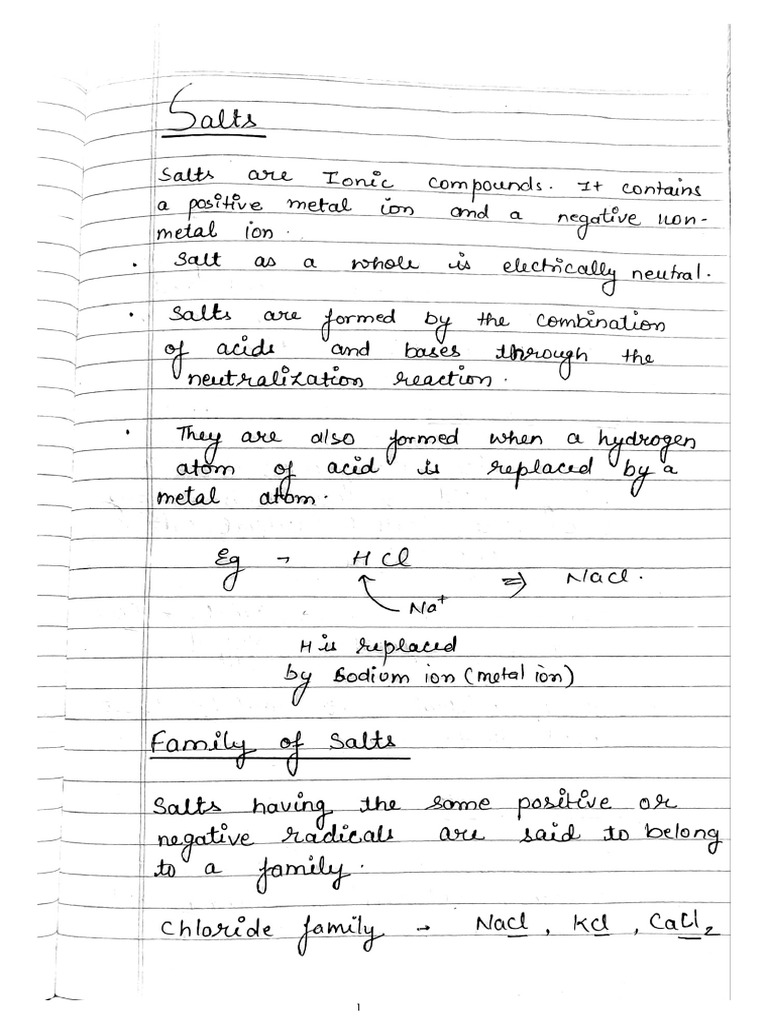 Salts
Salts are Ionic compounds. It contains
a positive metal ion and a negative non-
metal ion.
• Salt as a whole is electrically neutral.
• Salts are formed by the combination
of acids and bases through the
neutralization reaction.
• They are also formed when a hydrogen
atom of acid is replaced by a
metal atom.
Eg → HCl ⇒ NaCl.
Na⁺
H is replaced
by Sodium ion (metal ion)
Family of Salts
Salts having the same positive or
negative radicals are said to belong
to a family.
Chloride family → NaCl, KCl, CaCl₂
1